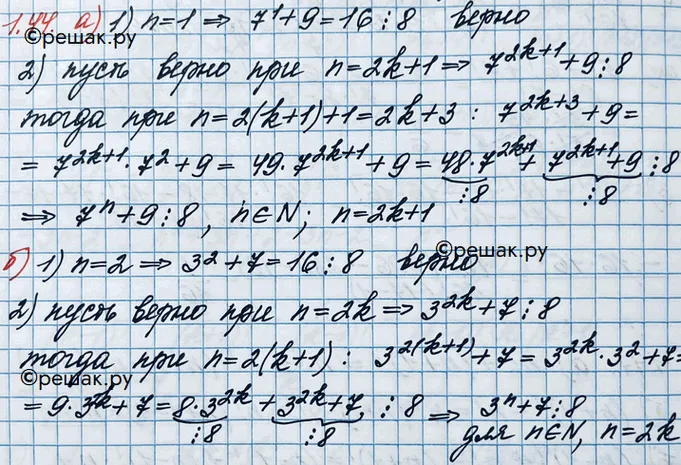 1.44 а) 1) n=1 ⇒ 7¹+9=16⋮8 верно
©решак.ру
2) пусть верно при n=2k+1 ⇒ 7²ᵏ⁺¹+9⋮8
тогда при n=2(k+1)+1=2k+3 : 7²ᵏ⁺³+9=
= 7²ᵏ⁺¹·7²+9 = 49·7²ᵏ⁺¹+9 = 48·7²ᵏ⁺¹+ 7²ᵏ⁺¹+9 ⋮8
⋮8 ⋮8
⇒ 7ⁿ+9⋮8, n∈N; n=2k+1
©решак.ру
б) 1) n=2 ⇒ 3²+7=16⋮8 верно
2) пусть верно при n=2k ⇒ 3²ᵏ+7⋮8
тогда при n=2(k+1) : 3²⁽ᵏ⁺¹⁾+7 = 3²ᵏ·3²+7=
©решак.ру
= 9·3²ᵏ+7 = 8·3²ᵏ + 3²ᵏ+7, ⋮8 ⇒ 3ⁿ+7⋮8
⋮8 ⋮8 для n∈N, n=2k